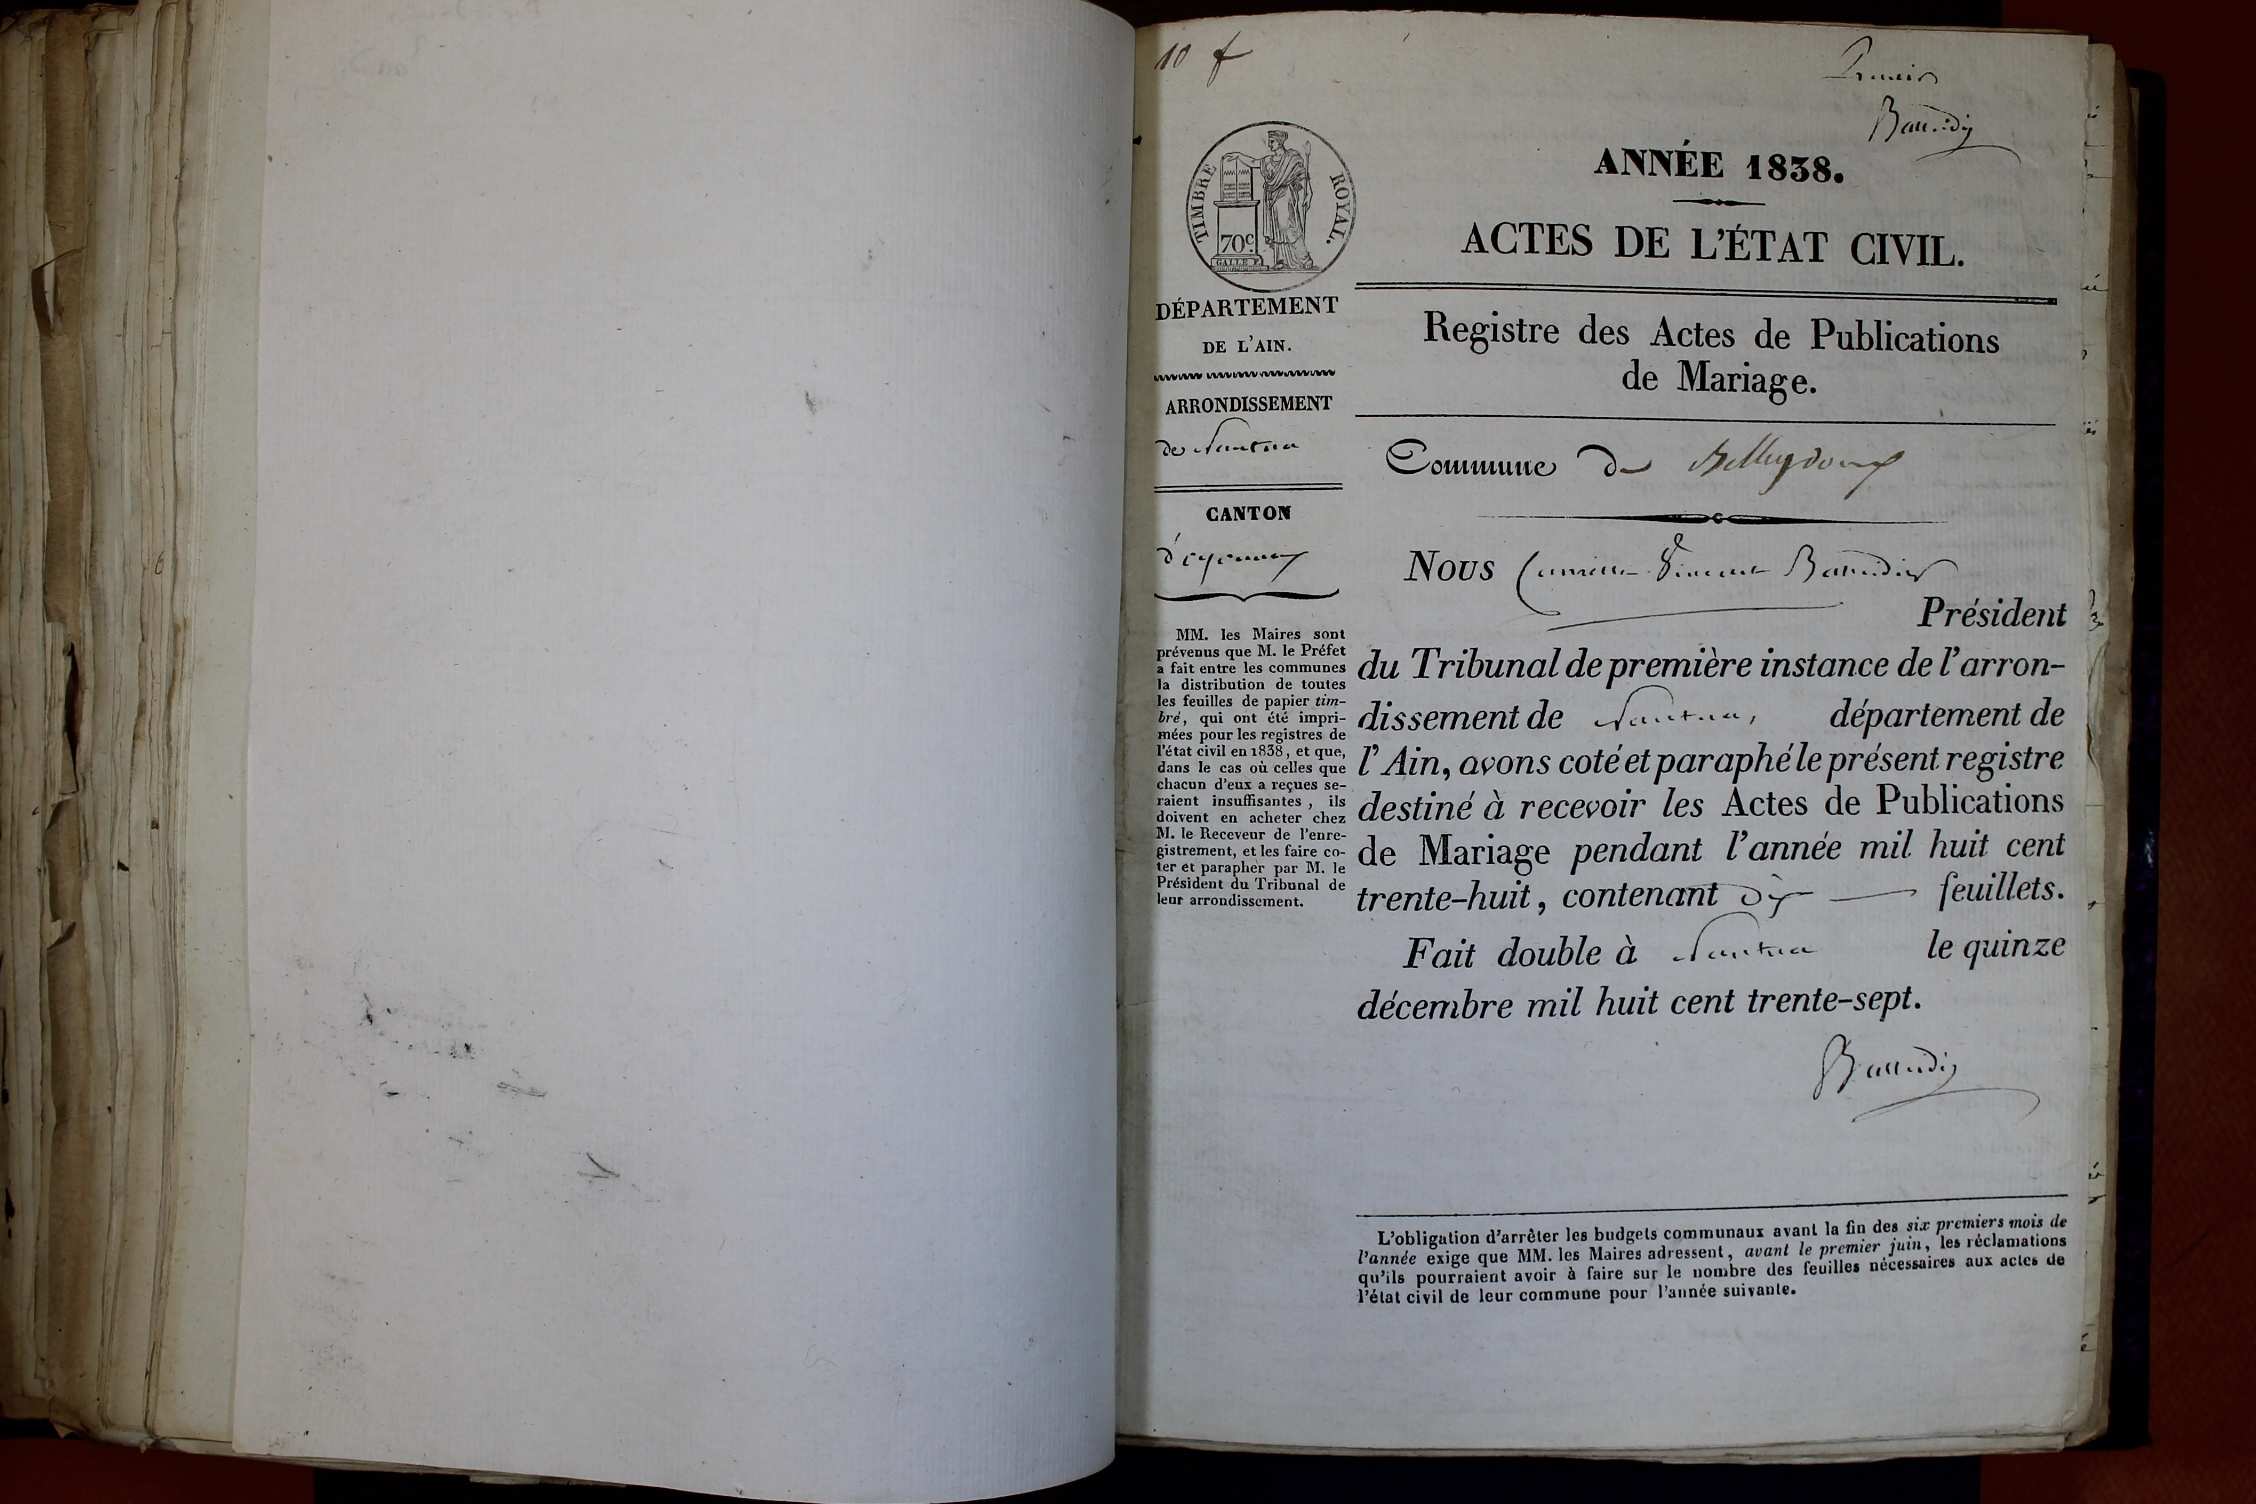 10 f
Premier
Baudin
ANNÉE 1838.
ACTES DE L'ÉTAT CIVIL.
TIMBRE ROYAL.
70c
GALLE F.
DÉPARTEMENT
DE L'AIN.
ARRONDISSEMENT
de Nantua
CANTON
d'oyonnax
MM. les Maires sont
prévenus que M. le Préfet
a fait entre les communes
la distribution de toutes
les feuilles de papier tim-
bré, qui ont été impri-
mées pour les registres de
l'état civil en 1838, et que,
dans le cas où celles que
chacun d'eux a reçues se-
raient insuffisantes, ils
doivent en acheter chez
M. le Receveur de l'enre-
gistrement, et les faire co-
ter et parapher par M. le
Président du Tribunal de
leur arrondissement.
Registre des Actes de Publications
de Mariage.
Commune de Belleydoux
Nous Vincent
Président
du Tribunal de première instance de l'arron-
dissement de Nantua, département de
l'Ain, avons coté et paraphé le présent registre
destiné à recevoir les Actes de Publications
de Mariage pendant l'année mil huit cent
trente-huit, contenant dix feuillets.
Fait double à Nantua le quinze
décembre mil huit cent trente-sept.
L'obligation d'arrêter les budgets communaux avant la fin des six premiers mois de
l'année exige que MM. les Maires adressent, avant le premier juin, les réclamations
qu'ils pourraient avoir à faire sur le nombre des feuilles nécessaires aux actes de
l'état civil de leur commune pour l'année suivante.